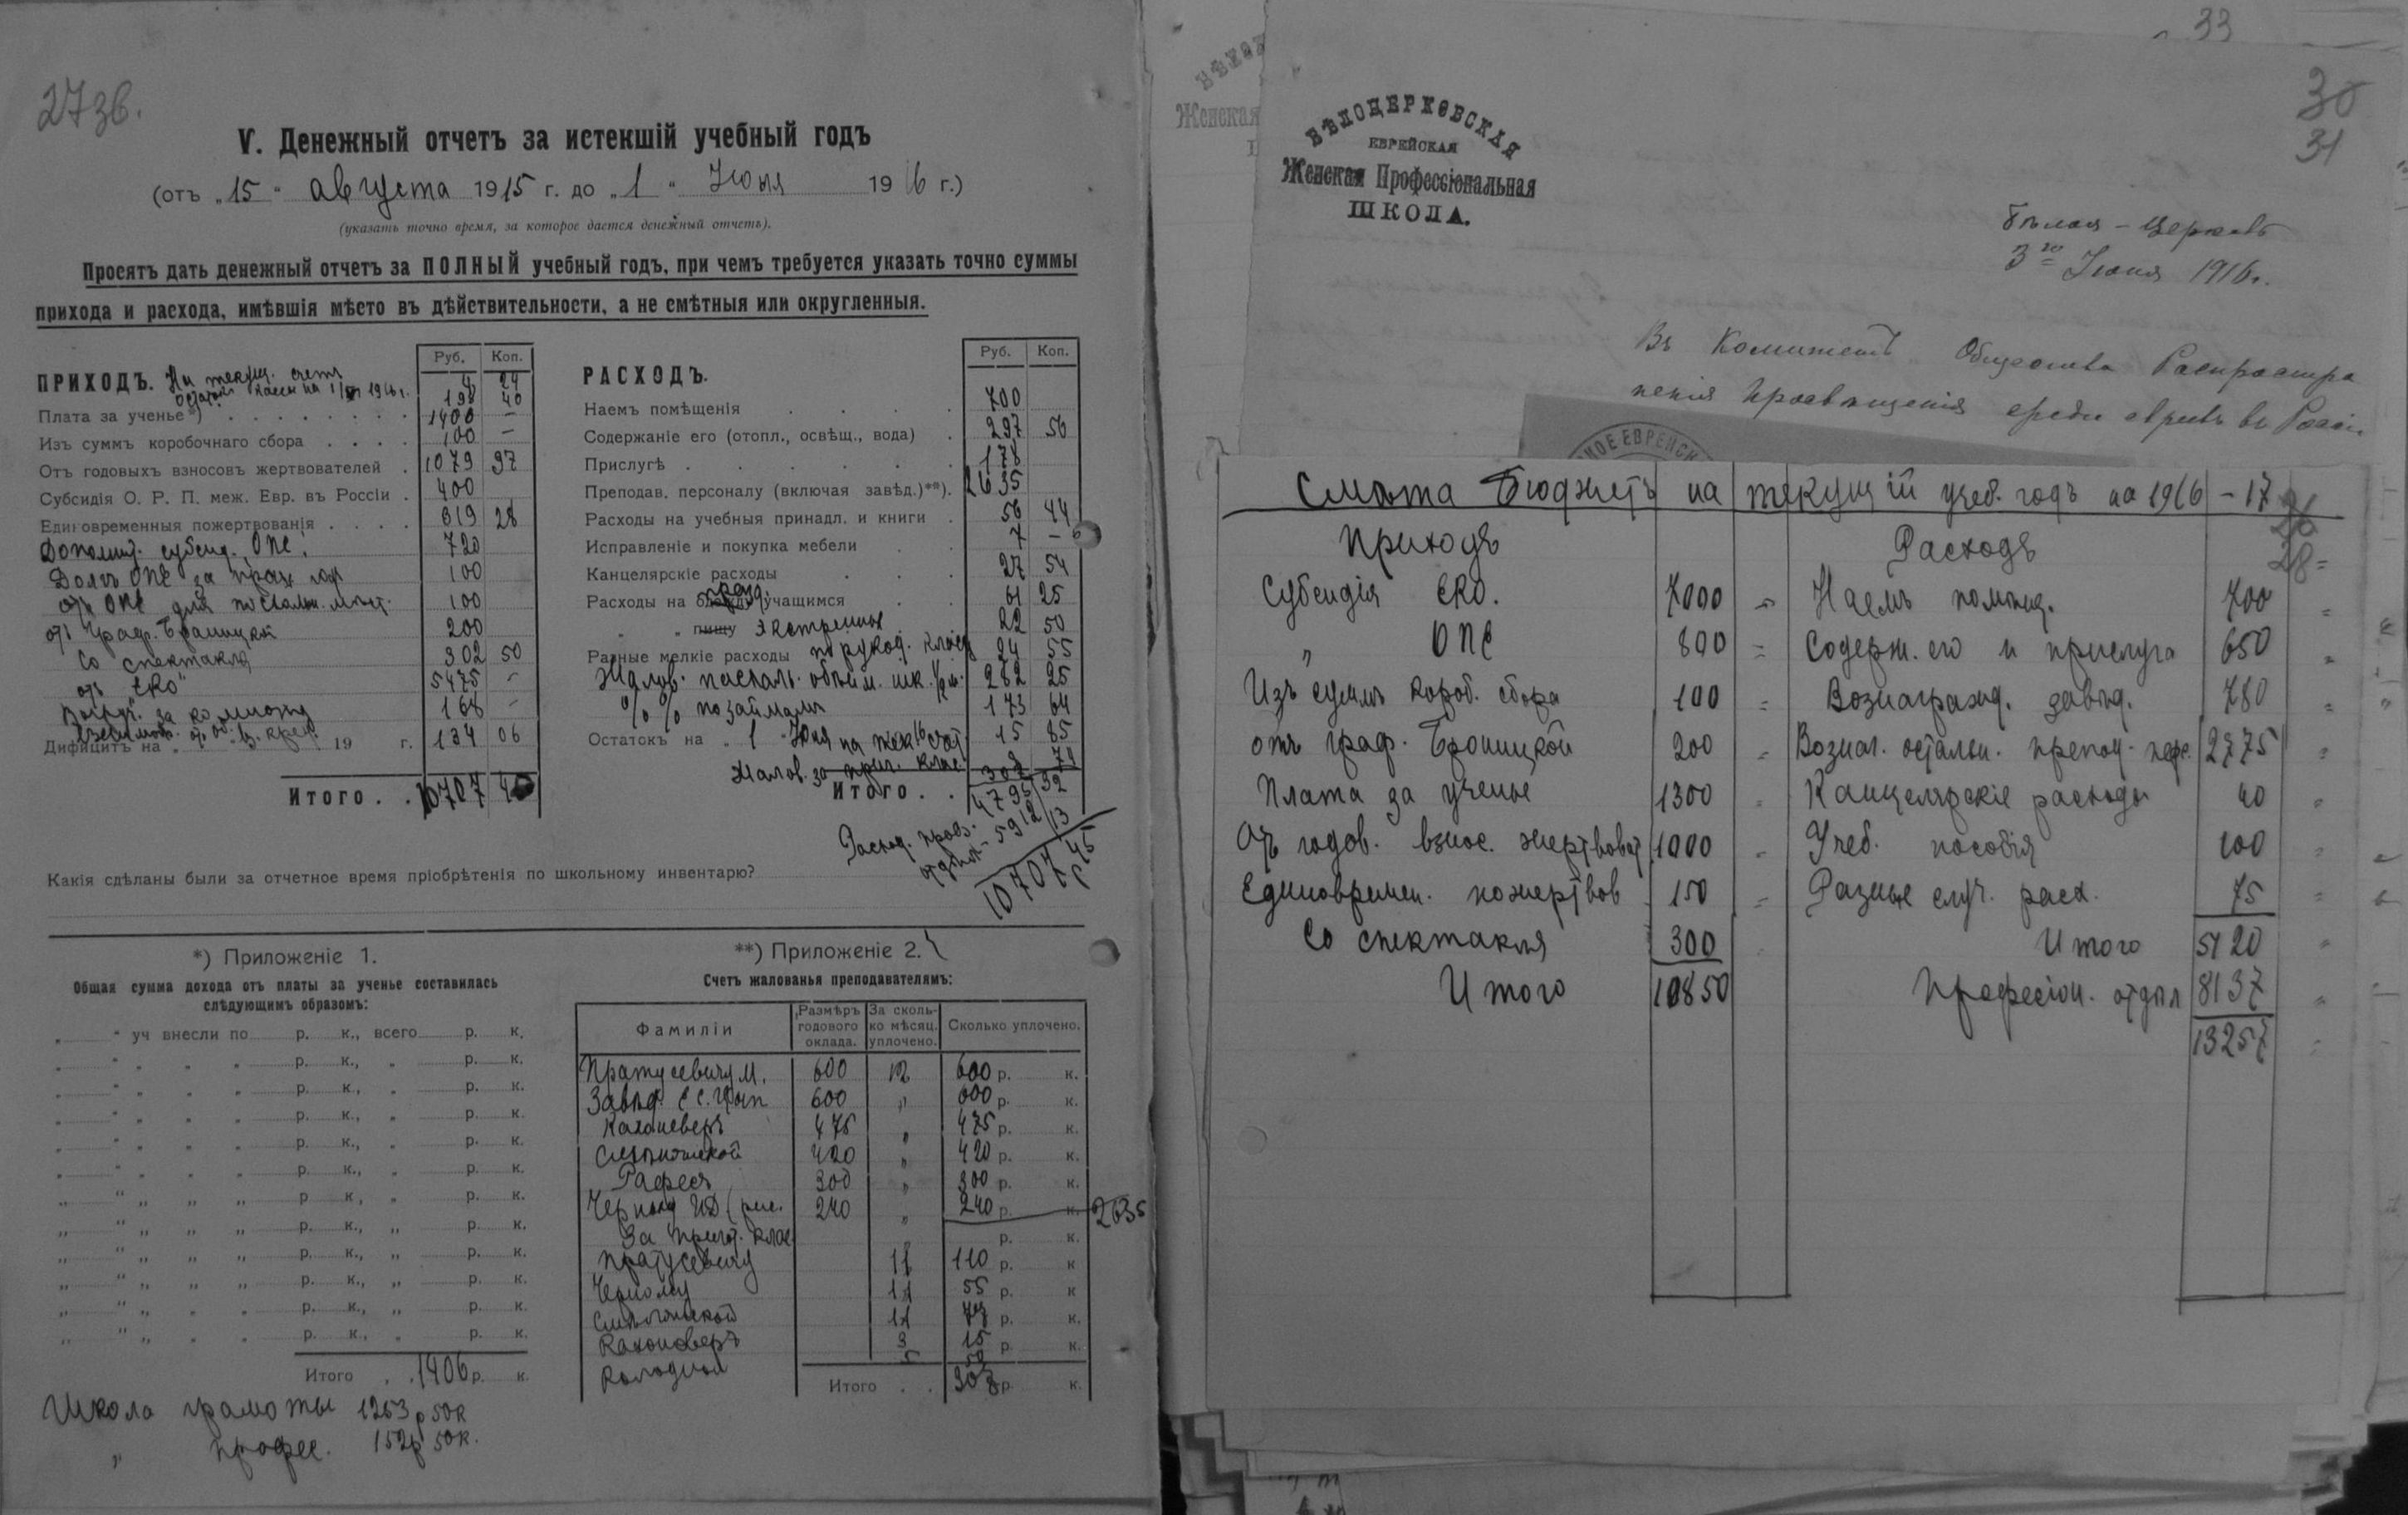 273б.
V. Денежный отчетъ за истекшій учебный годъ
(отъ „15“ августа 1915 г. до „1“ Июня 1916 г.)
(указать точно время, за которое дается денежный отчетъ).
Просятъ дать денежный отчетъ за ПОЛНЫЙ учебный годъ, при чемъ требуется указать точно суммы
прихода и расхода, имѣвшія мѣсто въ дѣйствительности, а не смѣтныя или округленныя.
Руб. Коп.
ПРИХОДЪ. На текущ. счету 4 24
Остатокъ кассы на 1916 г. 198 40
Плата за ученье*) 1406 —
Изъ суммъ коробочнаго сбора 100 —
Отъ годовыхъ взносовъ жертвователей 1079 97
Субсидія О. Р. П. меж. Евр. въ Россіи 400
Единовременныя пожертвованія 319 28
Дополнит. субсид. ОПЕ. 720
Долгъ ОПЕ за прош. год 100
отъ ОПЕ для 100
отъ Граф. Браницкой 200
Со спектакля 302 50
отъ „ЕКО“ 5475 —
за комнату 168 —
Дифицитъ на 19 г. 134 06
Итого 10707 45
Руб. Коп.
РАСХОДЪ.
Наемъ помѣщенія 700
Содержаніе его (отопл., освѣщ., вода) 297 56
Прислугѣ 178
Преподав. персоналу (включая завѣд.)**) 2635
Расходы на учебныя принадл. и книги 56 44
Исправленіе и покупка мебели 7 —
Канцелярскіе расходы 27 54
Расходы на одежду учащимся 61 25
„ „ пищу экстренныя 22 50
Разные мелкіе расходы по рукод. класу 24 55
Жалов. 282 25
% % по займамъ 173 64
Остатокъ на „1“ Юня на тек. счет. 15 85
Жалов. за приг. клас. 307
Итого 4795 32
Расход. проф. отдѣл. 5912 13
10707 45
Какія сдѣланы были за отчетное время пріобрѣтенія по школьному инвентарю?
*) Приложеніе 1.
Общая сумма дохода отъ платы за ученье составилась
слѣдующимъ образомъ:
„ “ уч внесли по р. к., всего р. к.
„ “ „ „ „ р. к., „ р. к.
„ “ „ „ „ р. к., „ р. к.
„ “ „ „ „ р. к., „ р. к.
„ “ „ „ „ р. к., „ р. к.
„ “ „ „ „ р. к., „ р. к.
„ “ „ „ „ р к, „ р. к.
„ “ „ „ „ р. к., „ р. к.
„ “ „ „ „ р. к., „ р. к.
„ “ „ „ „ р. к., „ р. к.
„ “ „ „ „ р. к., „ р. к.
„ “ „ „ „ р. к., „ р. к.
Итого 1406 р. к.
Школа грамоты 1253 р 50 к
„ профес. 152 р 50 к.
**) Приложеніе 2.
Счетъ жалованья преподавателямъ:
Фамиліи Размѣръ годового оклада. За сколько мѣсяц. уплочено. Сколько уплочено.
Пратусевичу М. 600 12 600 р. к.
Завѣд. 600 „ 600 р. к.
475 „ 475 р. к.
420 „ 420 р. к.
Рафесъ 300 „ 300 р. к.
240 „ 240 р. к. 2635
За пригот. клас. р. к.
Пратусевичу 11 110 р. к
11 55 р. к
11 77 р. к.
3 15 р. к.
5 50
Итого 307 р. к.
33
30
31
БѢЛОЦЕРКОВСКАЯ
ЕВРЕЙСКАЯ
Женская Профессіональная
ШКОЛА.
Женская
Бѣлая - Церковь
3го Июня 1916 г.
Въ Комитетъ Общества Распростра
ненія Просвѣщенія среди евреевъ въ Россіи
Смѣта Бюджетъ на текущій учеб. годъ на 1916 - 17
28
Приходъ
Субсидія ЕКО. 7000
„ ОПЕ 800
Изъ суммъ короб. сбора 100
отъ граф. Броницкой 200
Плата за ученье 1300
Отъ годов. взнос. жертвоват 1000
Единовремен. пожертвов 150
Со спектакля 300
Итого 10850
Расходъ
Наемъ помѣщ. 700
Содерж. его и прислуга 650
Вознагражд. завѣд. 780
Вознаг. остальн. препод. перс. 2775
Канцелярскіе расходы 40
Учеб. пособія 100
Разные случ. расх. 75
Итого 5120
Професіон. отдѣл 8137
13257